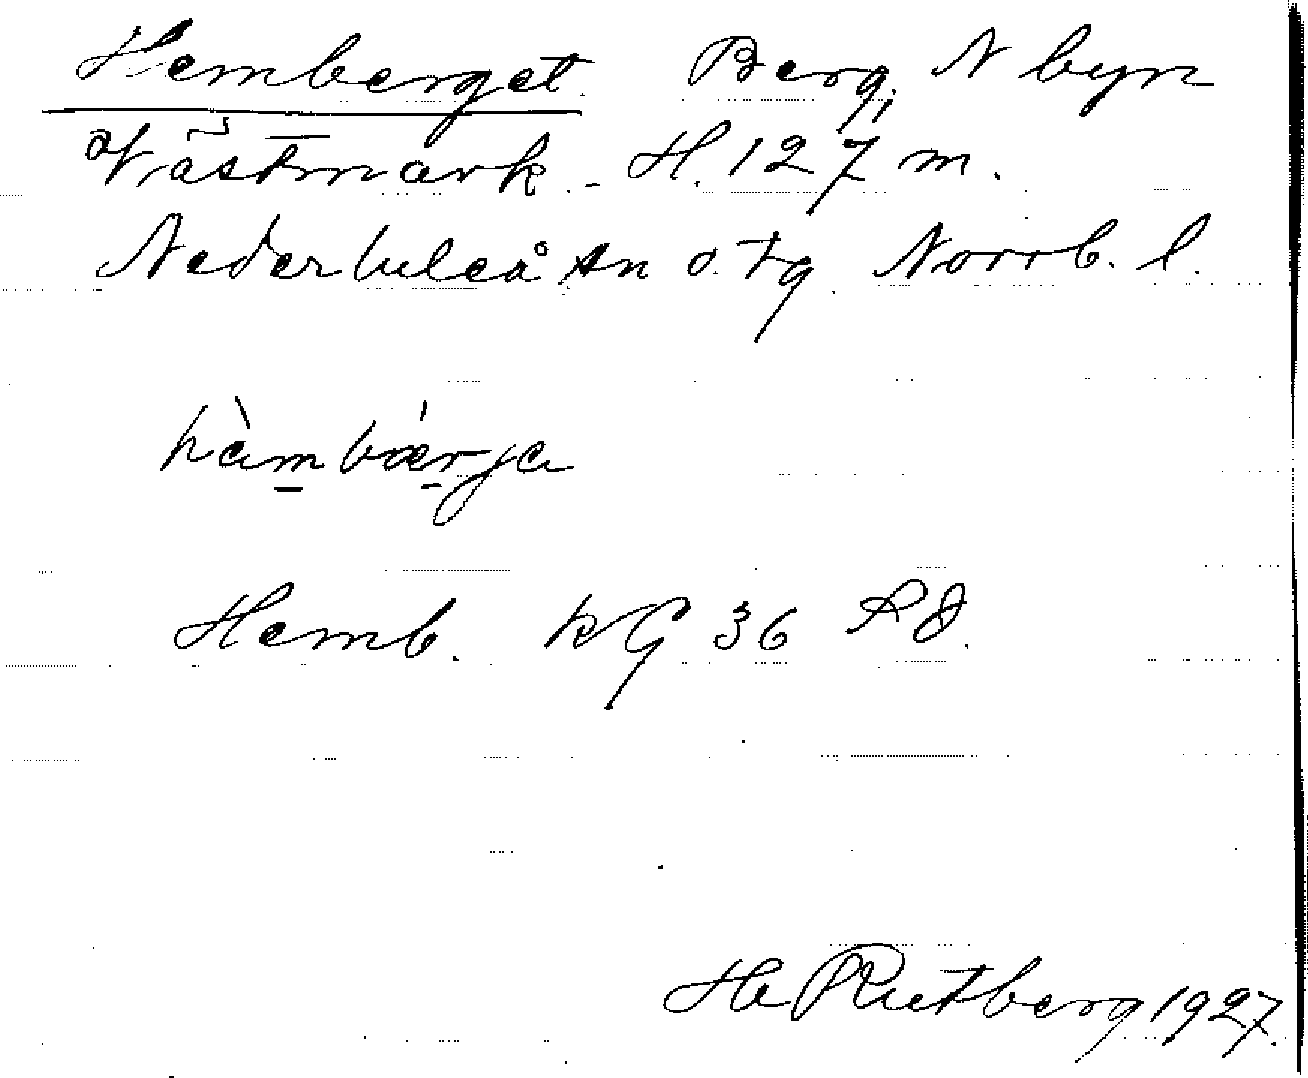 Hemberget Berg, N byn
Västmark. H. 127 m.
Nederluleå sn o. tg. Norrb. l.
hàmbǽrja
Hemb. kG 36
Hj Rutberg 1927.